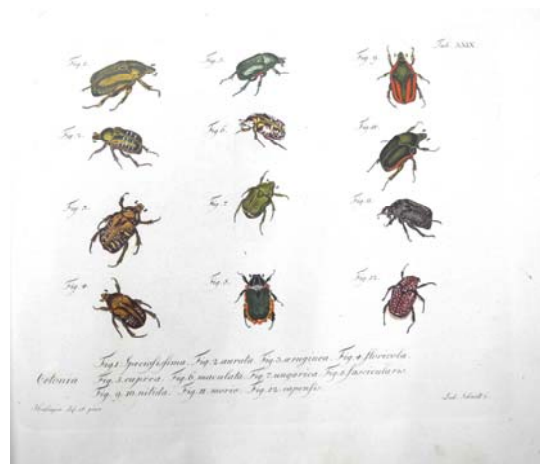 Tab. XXIX.
Fig. 1.
Fig. 5.
Fig. 9.
Fig. 2.
Fig. 6.
Fig. 10.
Fig. 3.
Fig. 7.
Fig. 11.
Fig. 4.
Fig. 8.
Fig. 12.
Fig. 1. Speciosissima. Fig. 2. aurata. Fig. 3. aeruginea. Fig. 4. floricola.
Cetonia Fig. 5. cuprea. Fig. 6. maculata. Fig. 7. ungarica. Fig. 8. fascicularis.
Fig. 9. 10. nitida. Fig. 11. morio. Fig. 12. capensis.